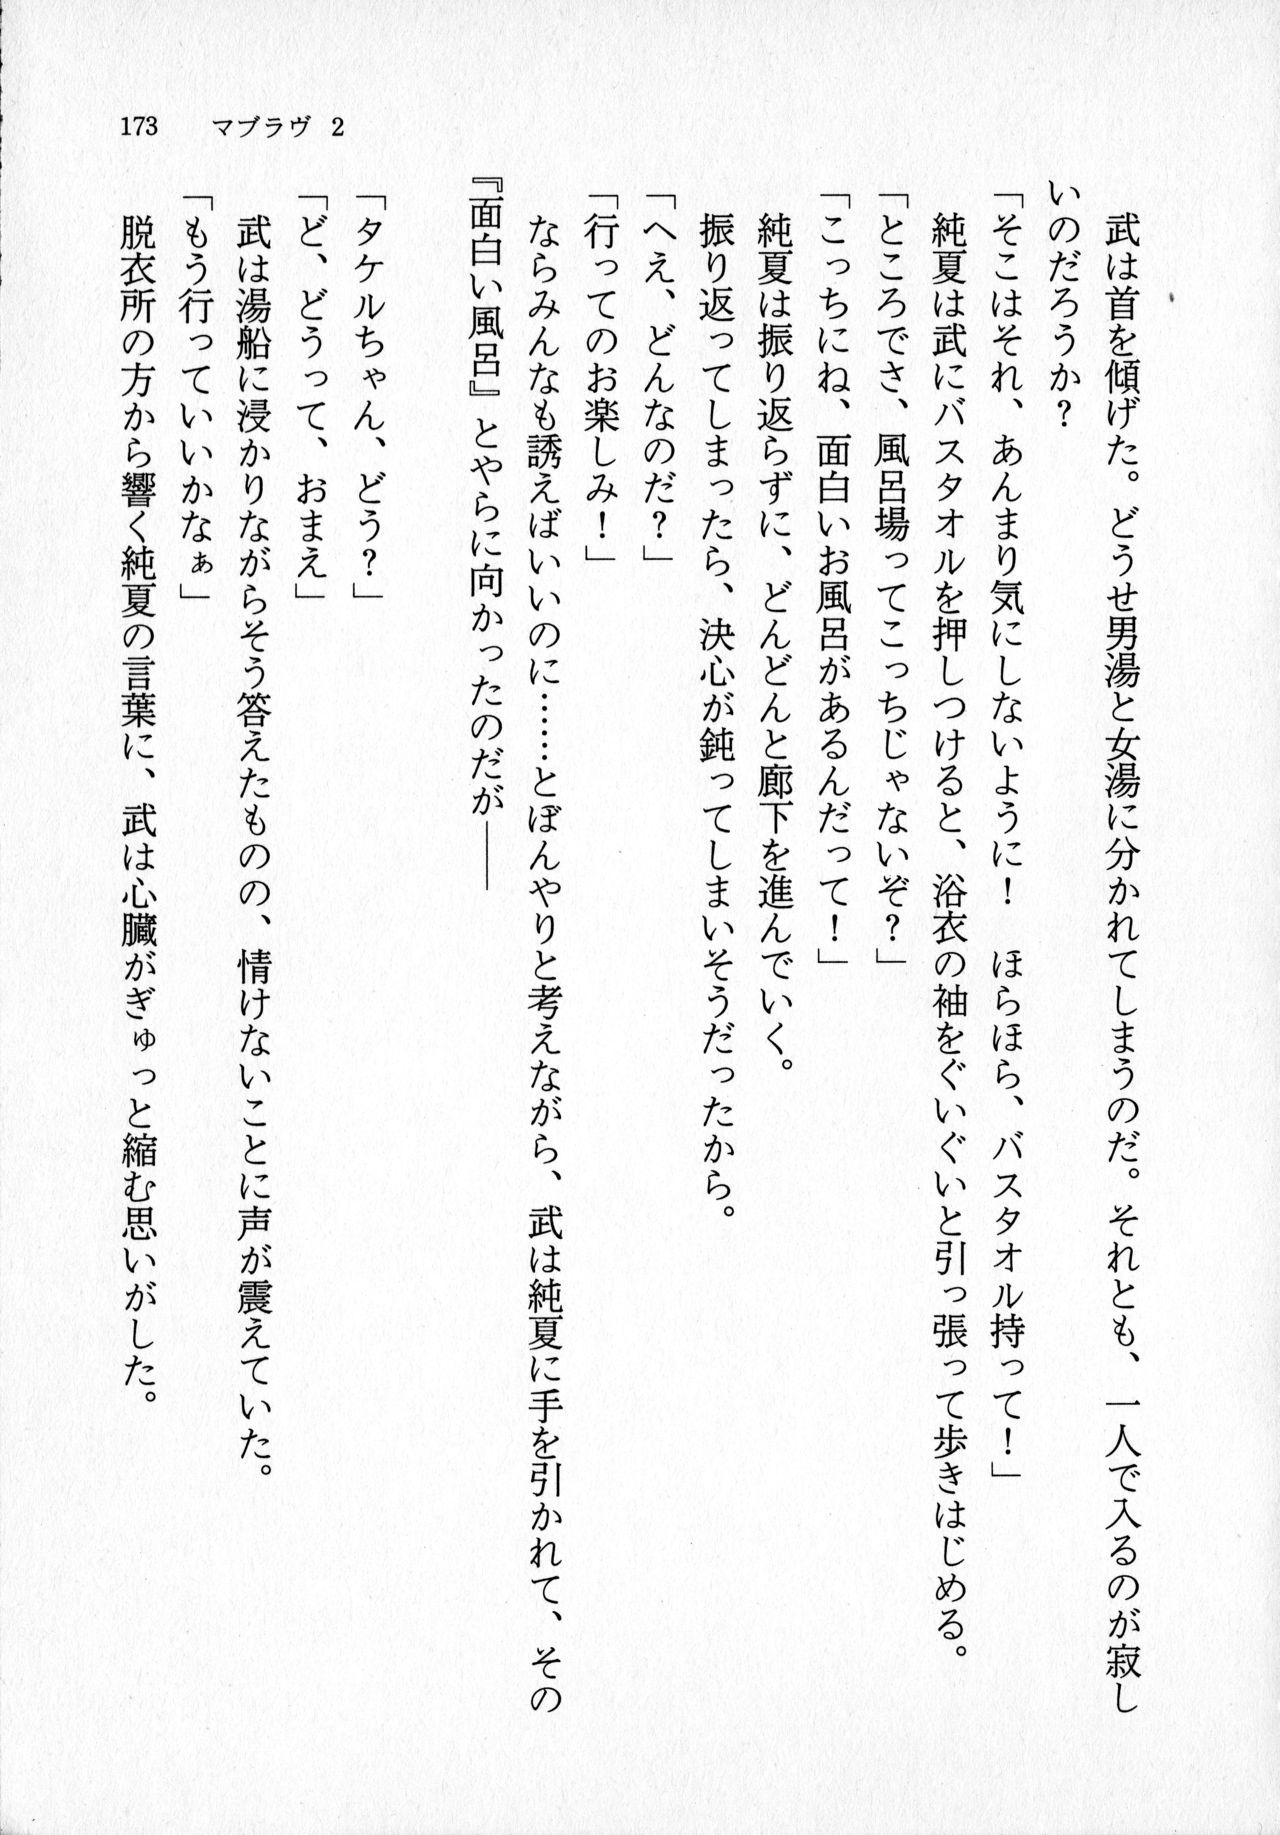 173 マブラヴ 2
武は首を傾げた。どうせ男湯と女湯に分かれてしまうのだ。それとも、一人で入るのが寂し
いのだろうか？
「そこはそれ、あんまり気にしないように！　ほらほら、バスタオル持って！」
純夏は武にバスタオルを押しつけると、浴衣の袖をぐいぐいと引っ張って歩きはじめる。
「ところでさ、風呂場ってこっちじゃないぞ？」
「こっちにね、面白いお風呂があるんだって！」
純夏は振り返らずに、どんどんと廊下を進んでいく。
振り返ってしまったら、決心が鈍ってしまいそうだったから。
「へえ、どんなのだ？」
「行ってのお楽しみ！」
ならみんなも誘えばいいのに……とぼんやりと考えながら、武は純夏に手を引かれて、その
『面白い風呂』とやらに向かったのだが――
「タケルちゃん、どう？」
「ど、どうって、おまえ」
武は湯船に浸かりながらそう答えたものの、情けないことに声が震えていた。
「もう行っていいかなぁ」
脱衣所の方から響く純夏の言葉に、武は心臓がぎゅっと縮む思いがした。